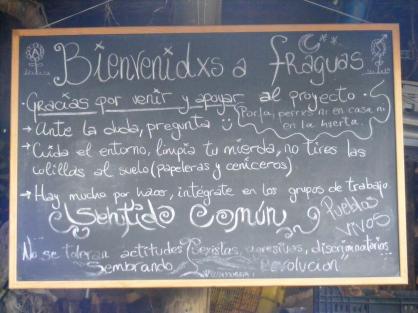 Bienvenidxs a fraguas
· Gracias por venir y apoyar al proyecto.
Porfa, perros ni en casa, ni
en la huerta.
→ Ante la duda, pregunta
→ Cuida el entorno, limpia tu mierda, no tires las
colillas al suelo (papeleras y ceniceros)
→ Hay mucho por hacer, intégrate en los grupos de trabajo
Sentido Común
Pueblos
VIVOS
No se toleran actitudes sexistas, agresivas, discriminatorias
Sembrando
Revolución